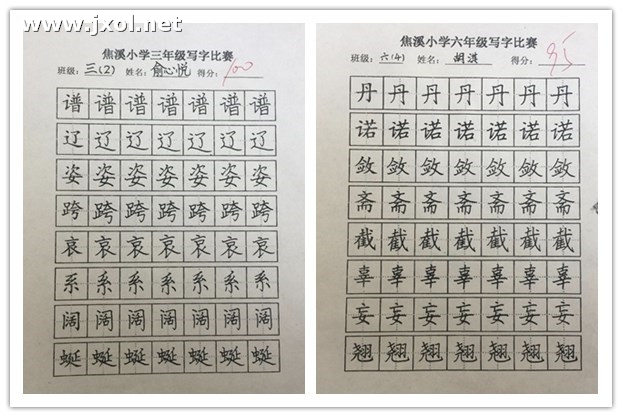 www.jxol.net
焦溪小学三年级写字比赛
班级：三(2) 姓名：俞心悦 得分：100
谱谱谱谱谱谱谱
辽辽辽辽辽辽辽
姿姿姿姿姿姿姿
跨跨跨跨跨跨跨
哀哀哀哀哀哀哀
系系系系系系系
阔阔阔阔阔阔阔
蜒蜒蜒蜒蜒蜒蜒
焦溪小学六年级写字比赛
班级：六(4) 姓名：胡淇 得分：95
丹丹丹丹丹丹丹
诺诺诺诺诺诺诺
敛敛敛敛敛敛敛
斋斋斋斋斋斋斋
截截截截截截截
辜辜辜辜辜辜辜
妄妄妄妄妄妄妄
翘翘翘翘翘翘翘